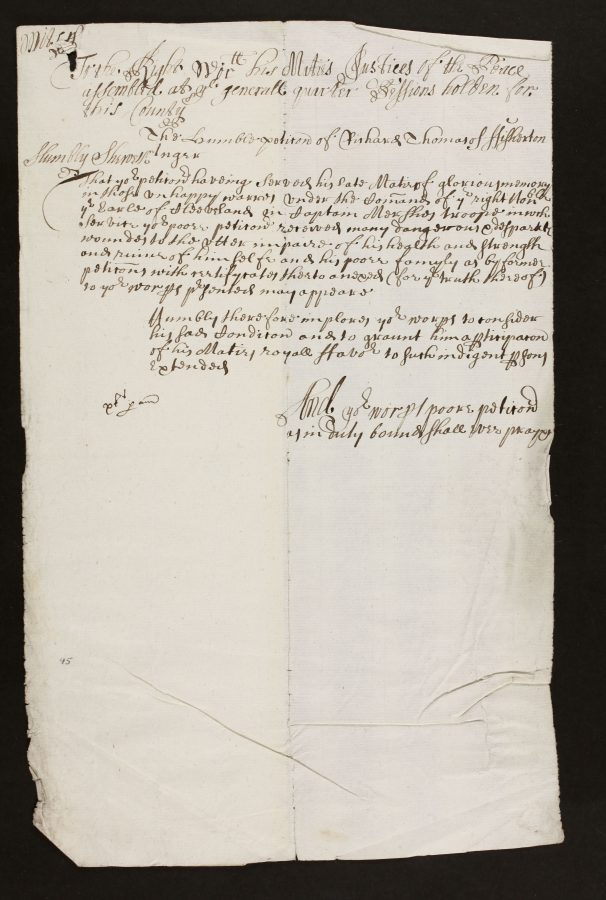 Wiltes
To the Right Worll his Maties Justices of the Peace
assembled at ye generall quarter Sessions holden for
this County
The humble peticon of Richard Thomas of ffisherton
Anger
Humbly Sheweth
That yor peticonr haveing Served his late Matie of glorious memory
in those unhappy warres under the Comand of ye right Honble
ye Earle of Cleeveland in Captain Mershes troope in wch
service yor poore peticonr received many dangerous & desparate
wounds to the utter impaire of his health and strength
and ruine of himselfe and his poore family as by former
peticons with certifycates thereto anexed (for ye truth thereof)
to yor worpps psented may appeare
Humbly therefore implores yor worpps to consider
his sad Condicon and to graunt him a pticipacon
of his Maties royall ffavor to such indigent psons
Extended
And yor worpps poore peticonr
as in duty bound shall ever pray &c
45